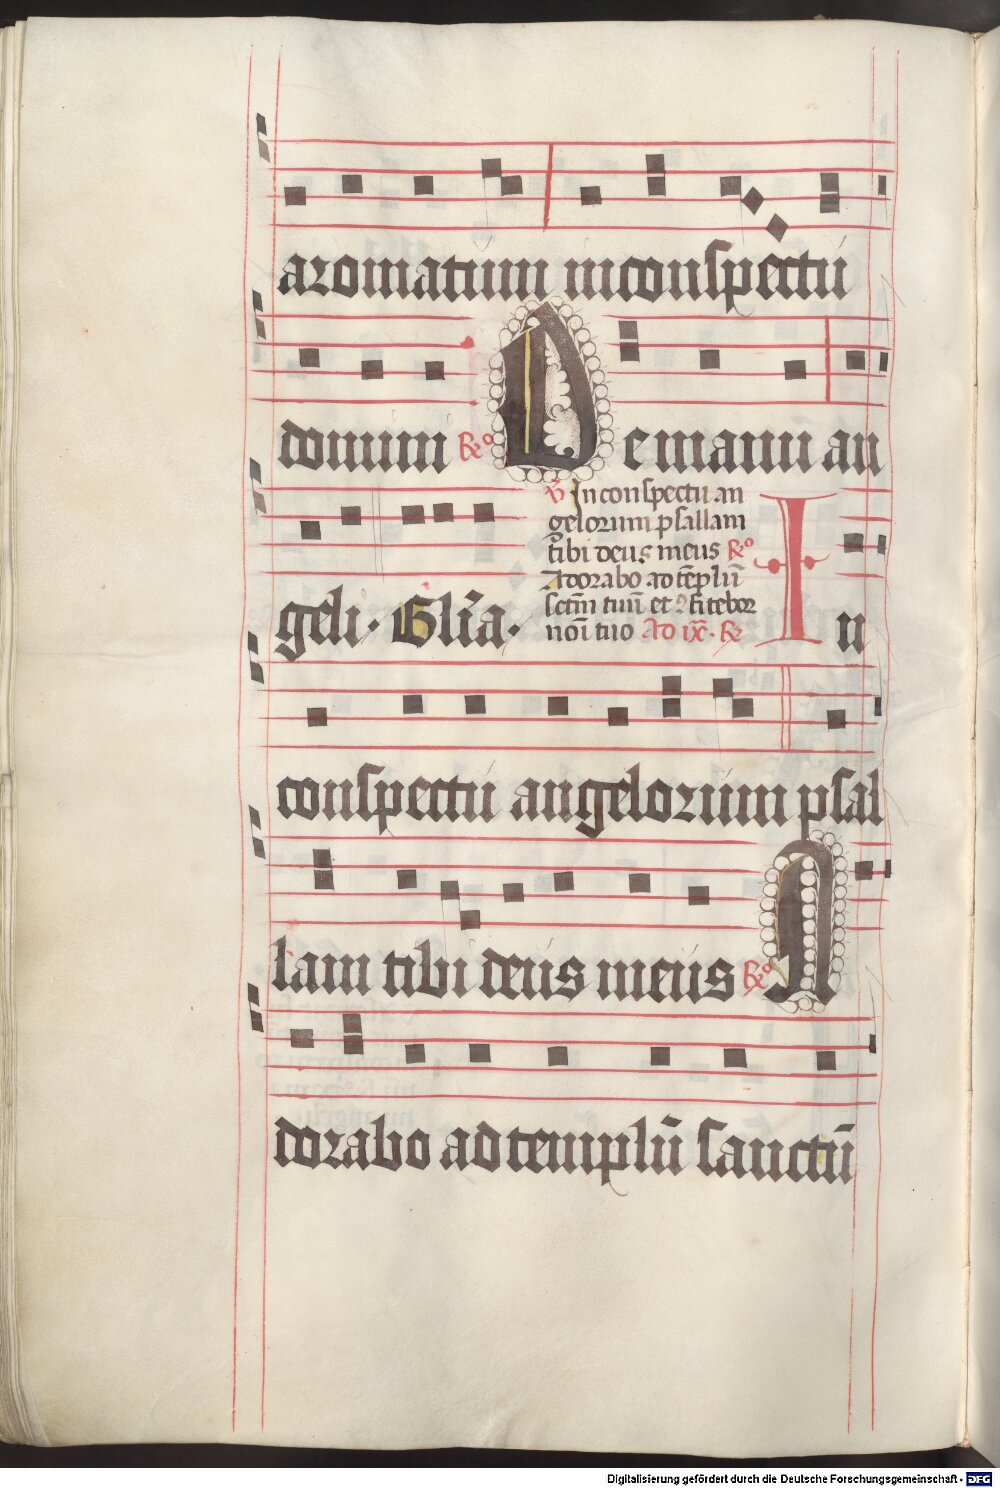 aromatum in conspectu
domini R̃o De manu an
geli. Gl'ia.
V̄ In conspectu an
gelorum psallam
tibi deus meus R̃o
Adorabo ad tēplū
sctm̄ tuū et ꝯfitebor
noī tuo Ad ix. R̃
In
conspectu angelorum psal
lam tibi deus meus R̃o A
dorabo ad templū sanctū
Digitalisierung gefördert durch die Deutsche Forschungsgemeinschaft - DFG